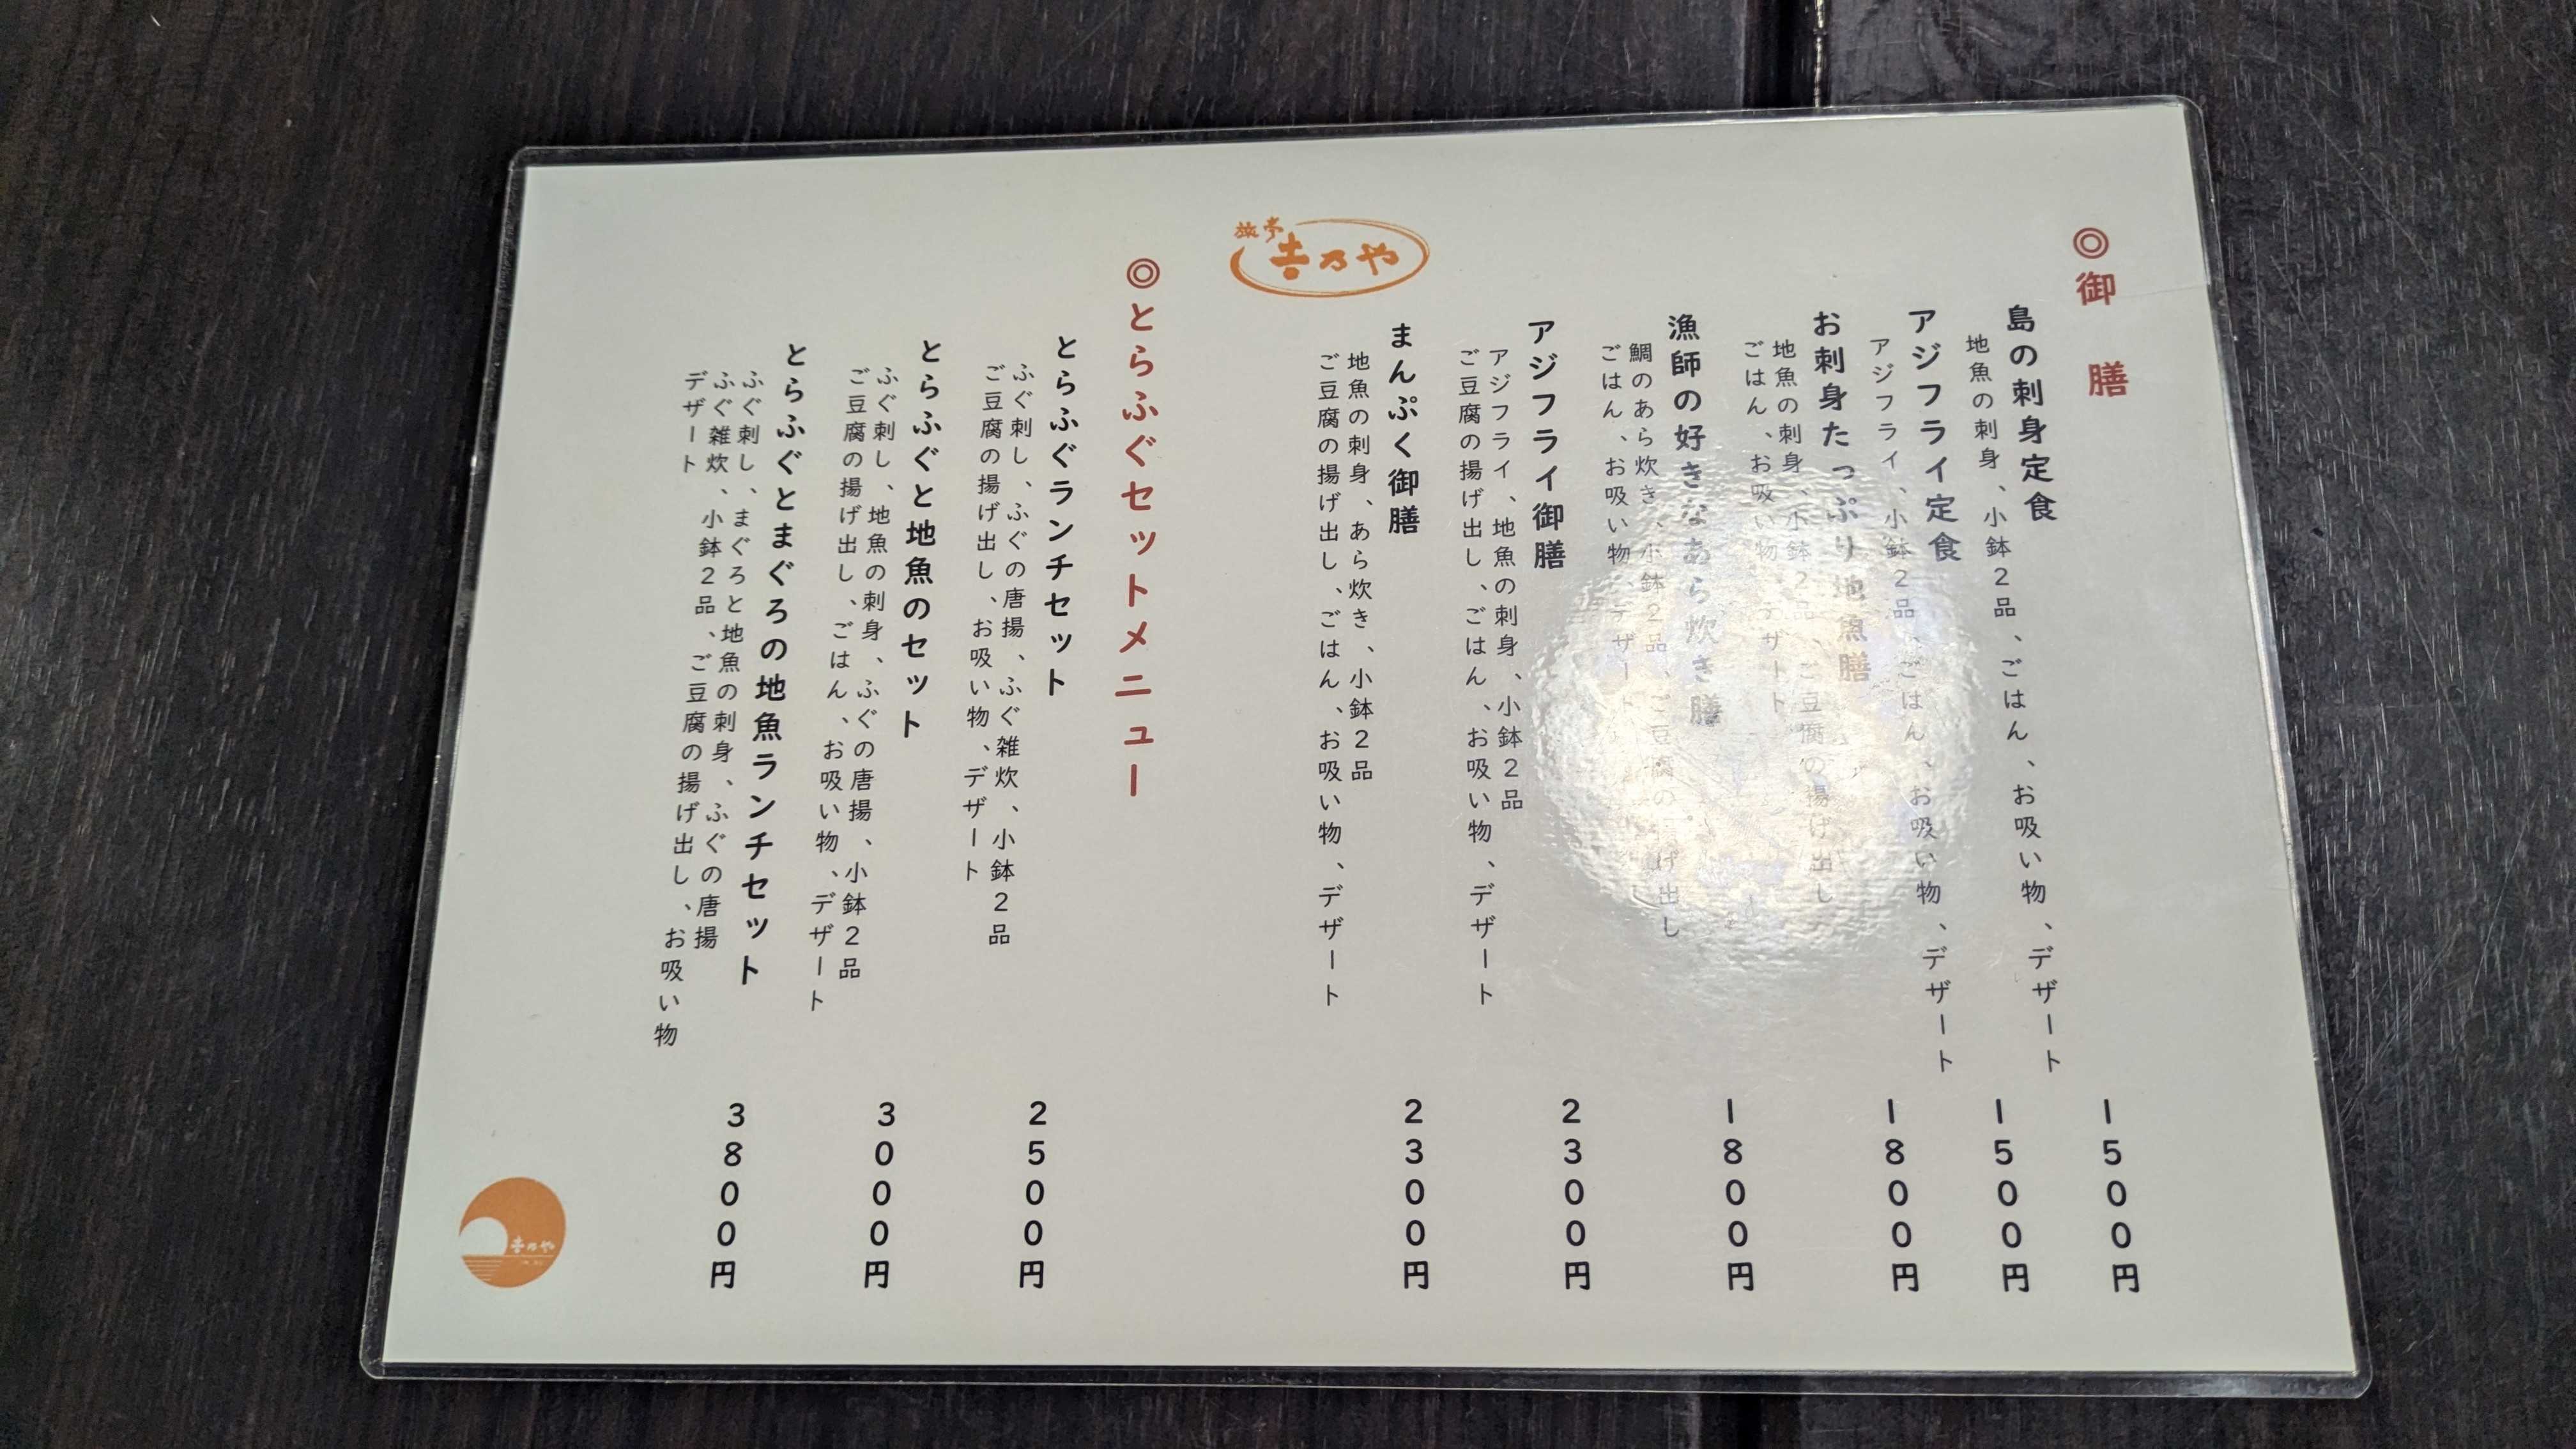 ◎御　膳
島の刺身定食
地魚の刺身、小鉢２品、ごはん、お吸い物、デザート
１５００円
アジフライ定食
アジフライ、小鉢２品、ごはん、お吸い物、デザート
１５００円
お刺身たっぷり地魚膳
地魚の刺身、小鉢２品、ご豆腐の揚げ出し
ごはん、お吸い物、デザート
１８００円
漁師の好きなあら炊き膳
鯛のあら炊き、小鉢２品、ご豆腐の揚げ出し
ごはん、お吸い物、デザート
１８００円
アジフライ御膳
アジフライ、地魚の刺身、小鉢２品
ご豆腐の揚げ出し、ごはん、お吸い物、デザート
２３００円
まんぷく御膳
地魚の刺身、あら炊き、小鉢２品
ご豆腐の揚げ出し、ごはん、お吸い物、デザート
２３００円
旅亭
吉乃や
◎とらふぐセットメニュー
とらふぐランチセット
ふぐ刺し、ふぐの唐揚、ふぐ雑炊、小鉢２品
ご豆腐の揚げ出し、お吸い物、デザート
２５００円
とらふぐと地魚のセット
ふぐ刺し、地魚の刺身、ふぐの唐揚、小鉢２品
ご豆腐の揚げ出し、ごはん、お吸い物、デザート
３０００円
とらふぐとまぐろの地魚ランチセット
ふぐ刺し、まぐろと地魚の刺身、ふぐの唐揚
ふぐ雑炊、小鉢２品、ご豆腐の揚げ出し、お吸い物
デザート
３８００円
吉乃や